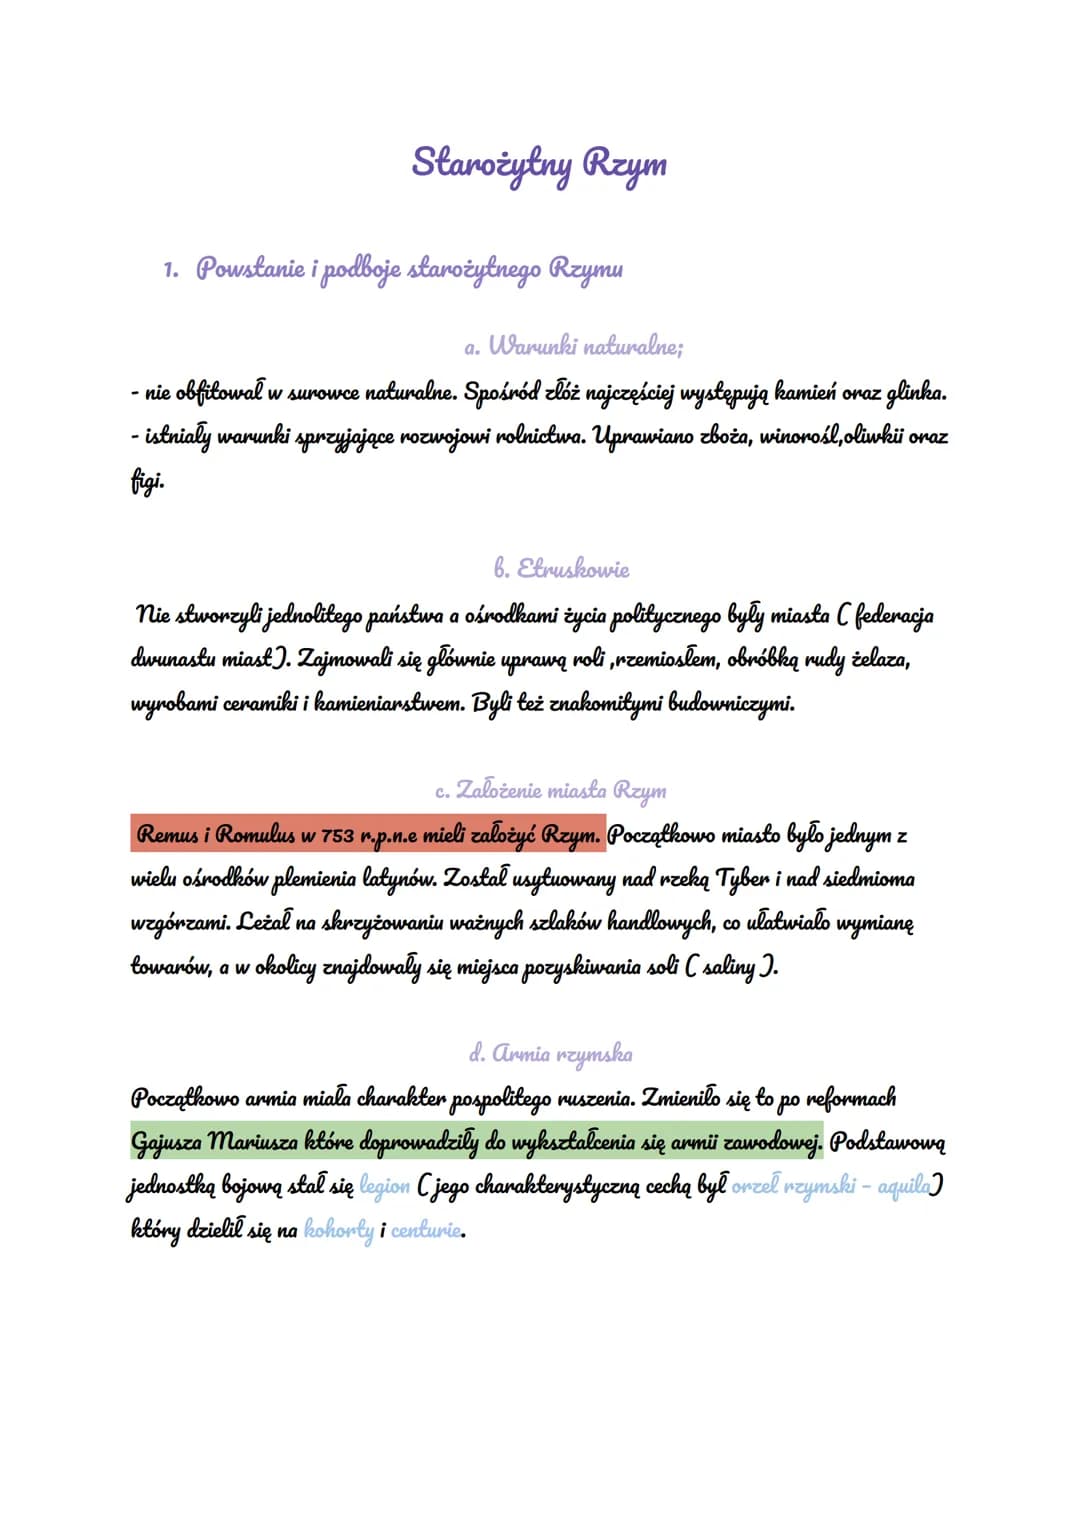 Starożytny Rzym
1. Powstanie i podboje starożytnego Rzymu
a. Warunki naturalne;
- nie obfitował w surowce naturalne. Spośród złóż najczęściej występują kamień oraz glinka.
- istniały warunki sprzyjające rozwojowi rolnictwa. Uprawiano zboża, winorośl,oliwkii oraz
figi.
b. Etruskowie
Nie stworzyli jednolitego państwa a ośrodkami życia politycznego były miasta ( federacja
dwunastu miast). Zajmowali się głównie uprawą roli ,rzemiosłem, obróbką rudy żelaza,
wyrobami ceramiki i kamieniarstwem. Byli też znakomitymi budowniczymi.
c. Założenie miasta Rzym
Remus i Romulus w 753 r.p.n.e mieli założyć Rzym. Początkowo miasto było jednym z
wielu ośrodków plemienia latynów. Został usytuowany nad rzeką Tyber i nad siedmioma
wzgórzami. Leżał na skrzyżowaniu ważnych szlaków handlowych, co ułatwiało wymianę
towarów, a w okolicy znajdowały się miejsca pozyskiwania soli ( saliny ).
d. Armia rzymska
Początkowo armia miała charakter pospolitego ruszenia. Zmieniło się to po reformach
Gajusza Mariusza które doprowadziły do wykształcenia się armii zawodowej. Podstawową
jednostką bojową stał się legion ( jego charakterystyczną cechą był orzeł rzymski - aquila)
który dzielił się na kohorty i centurie.